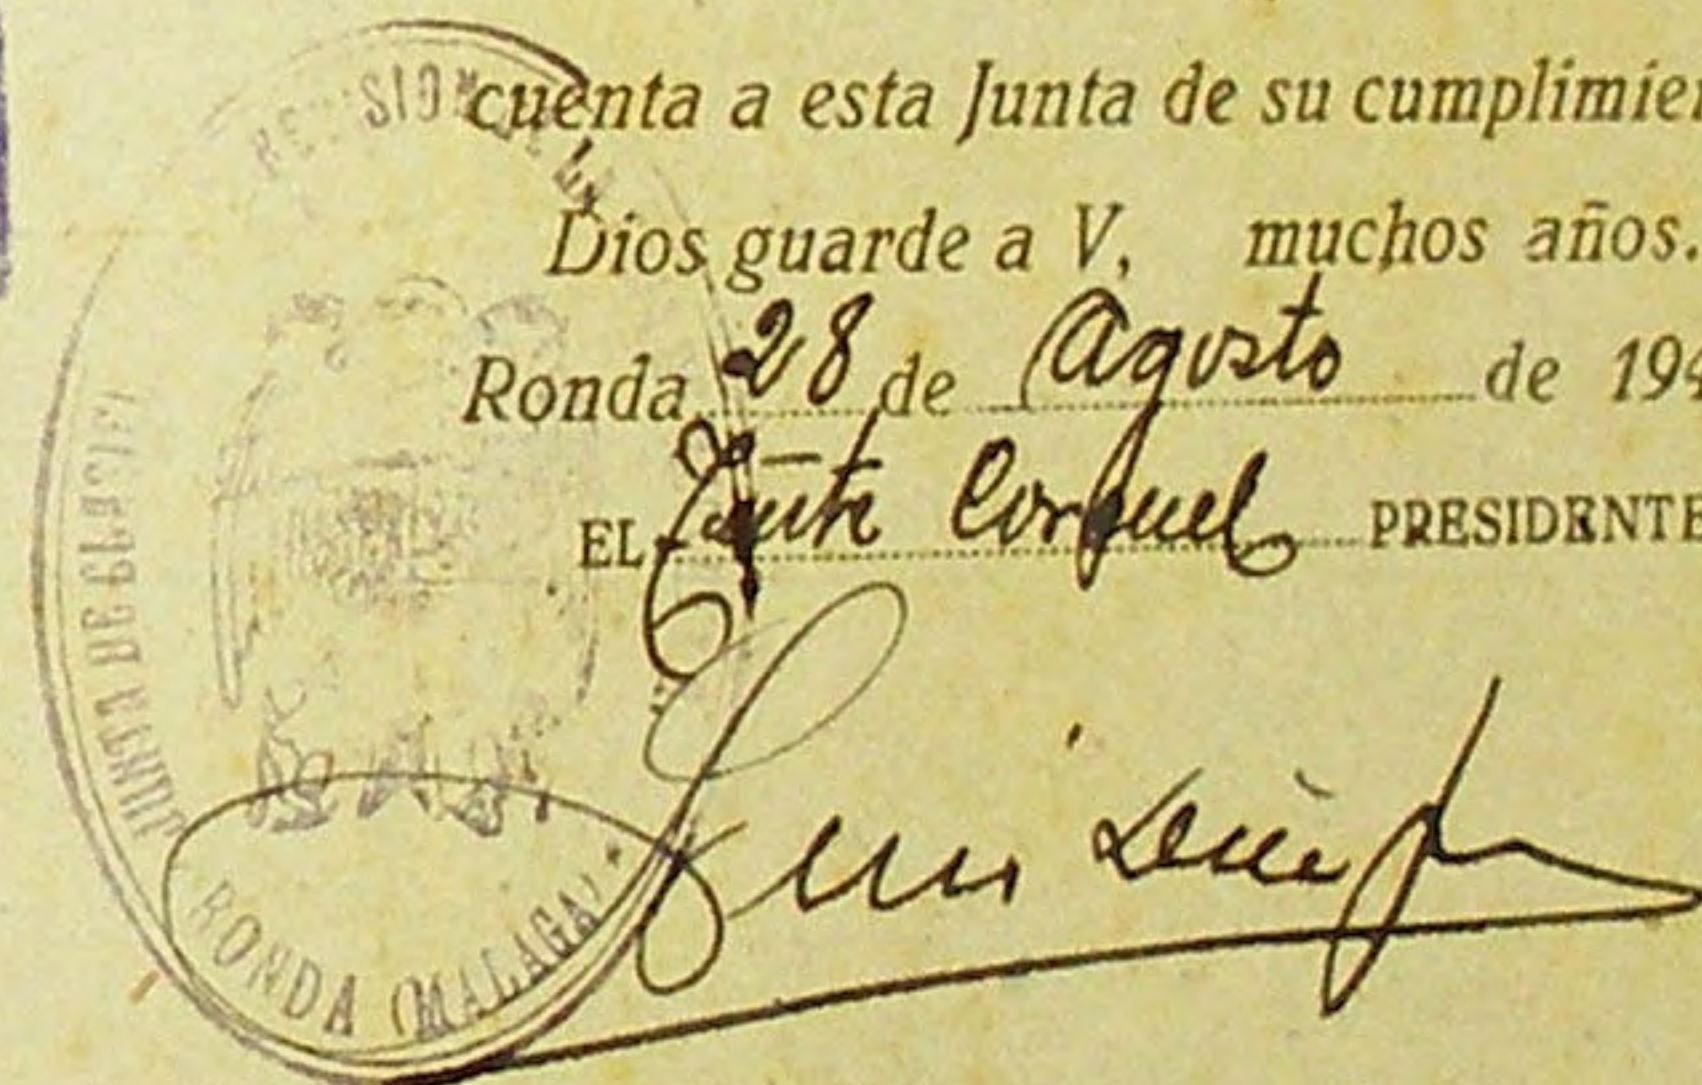 cuenta a esta Junta de su cumplimien
Dios guarde a V, muchos años.
Ronda 28 de Agosto de 194
EL Tnte Coronel PRESIDENTE
Luis
JUNTA DE
RONDA (MALAGA)